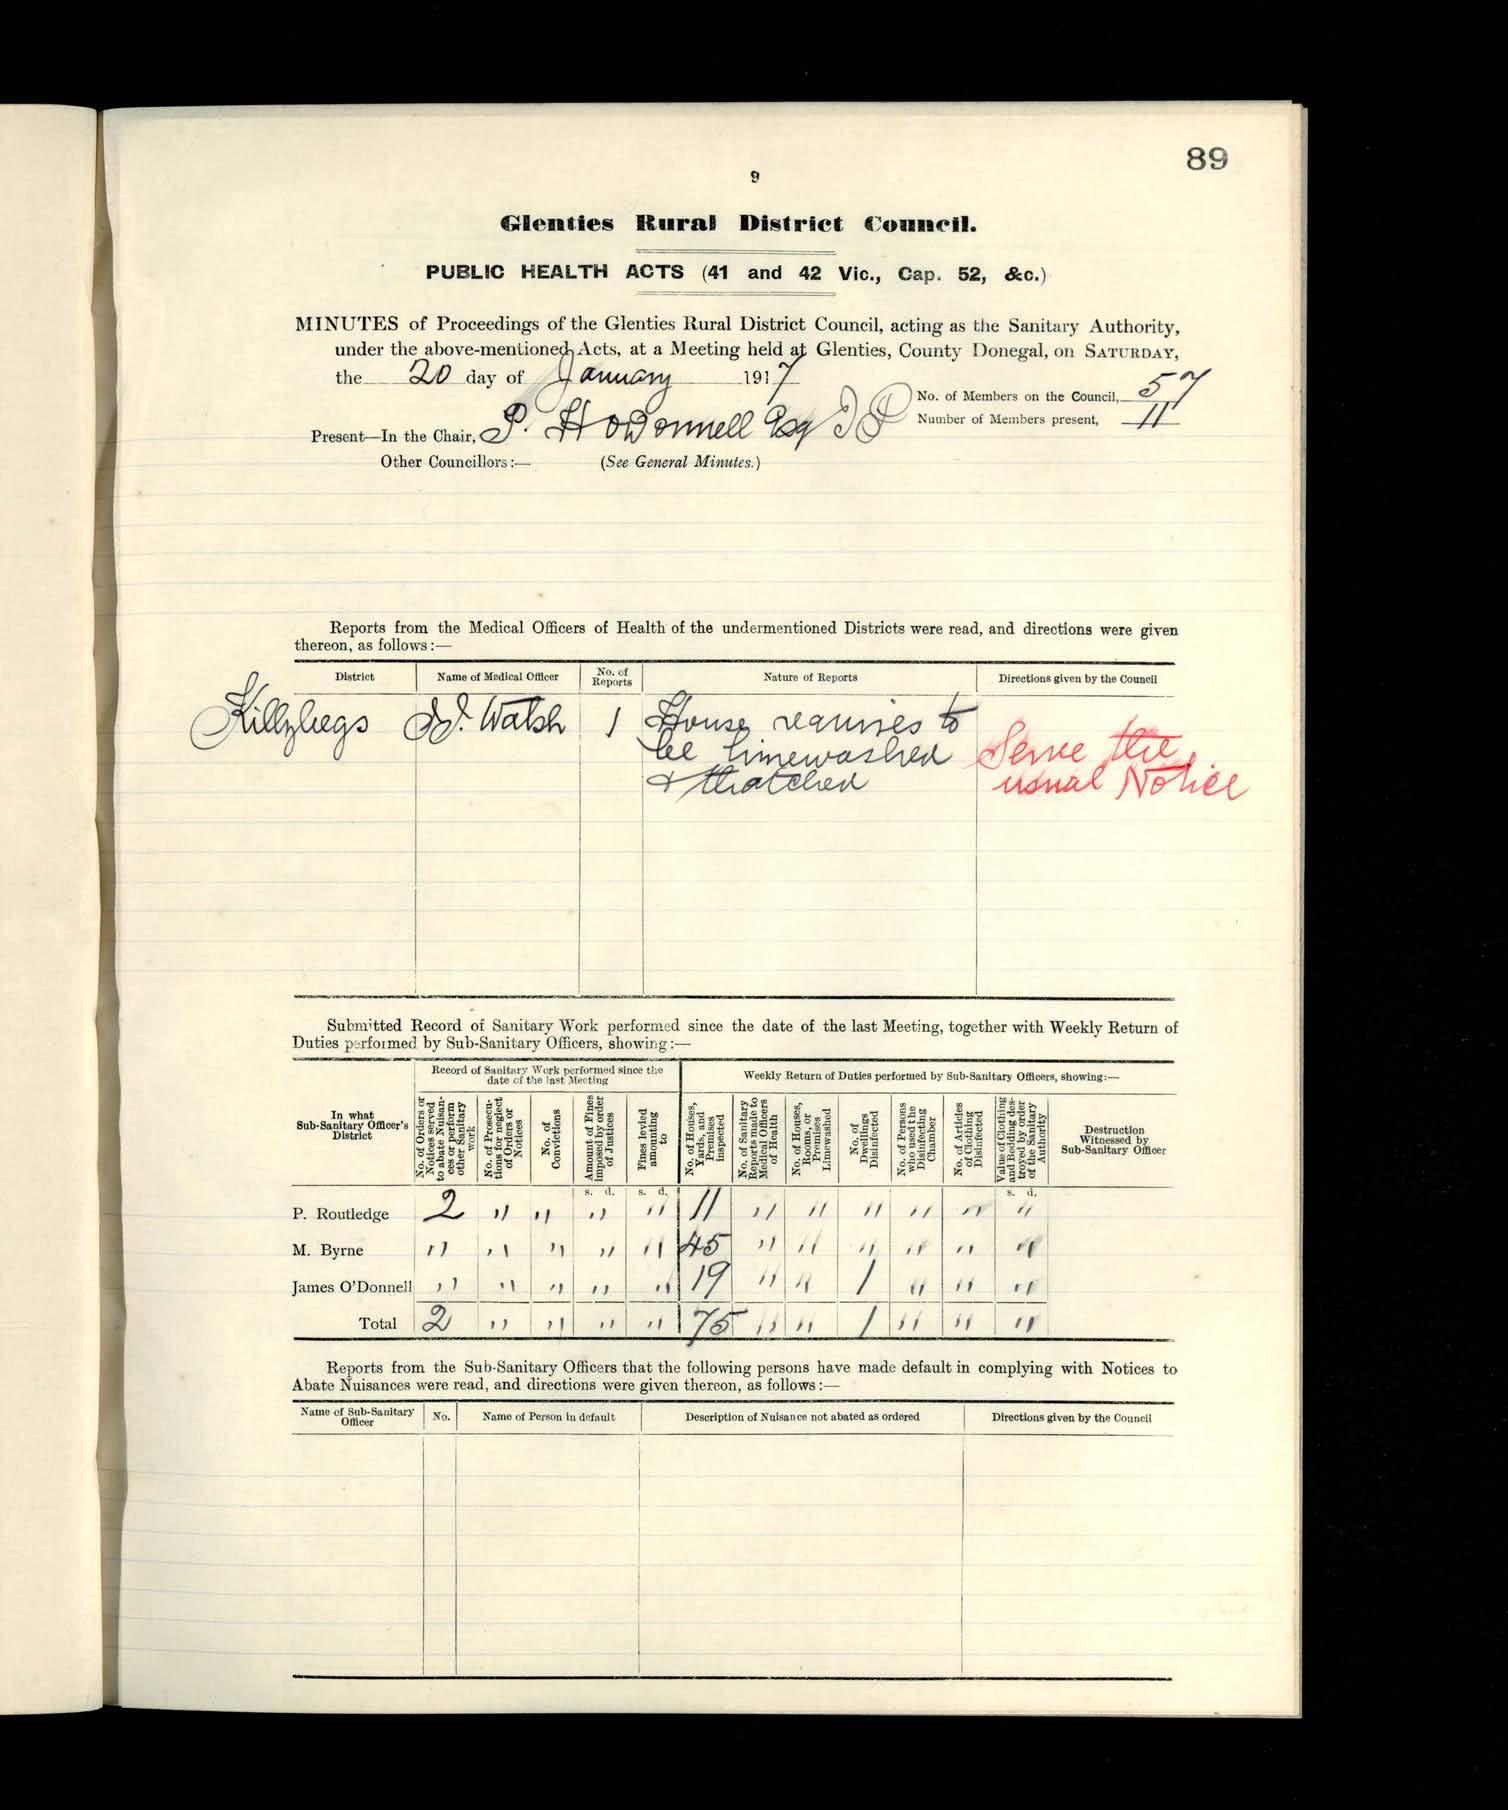 89
9
Glenties Rural District Council.
PUBLIC HEALTH ACTS (41 and 42 Vic., Cap. 52, &c.)
MINUTES of Proceedings of the Glenties Rural District Council, acting as the Sanitary Authority,
under the above-mentioned Acts, at a Meeting held at Glenties, County Donegal, on SATURDAY,
the 20 day of January 1917
No. of Members on the Council, 57
Number of Members present, 11
Present—In the Chair, P. H O'Donnell Esq J P
Other Councillors:— (See General Minutes.)
Reports from the Medical Officers of Health of the undermentioned Districts were read, and directions were given
thereon, as follows:—
District Name of Medical Officer No. of Reports Nature of Reports Directions given by the Council
Killybegs Walsh 1 House requires to
be limewashed Serve the
& thatched usual Notice
Submitted Record of Sanitary Work performed since the date of the last Meeting, together with Weekly Return of
Duties performed by Sub-Sanitary Officers, showing:—
In what Sub-Sanitary Officer's District
Record of Sanitary Work performed since the date of the last Meeting
Weekly Return of Duties performed by Sub-Sanitary Officers, showing:—
No. of Orders or Notices served to abate Nuisances or perform other Sanitary work
No. of Prosecutions for neglect of Orders or Notices
No. of Convictions
Amount of Fines imposed by order of Justices
Fines levied amounting to
No. of Houses, Yards, and Premises inspected
No. of Sanitary Reports made to Medical Officers of Health
No. of Houses, Rooms, or Premises Limewashed
No. of Dwellings Disinfected
No. of Persons who used the Disinfecting Chamber
No. of Articles of Clothing Disinfected
Value of Clothing and Bedding destroyed by order of the Sanitary Authority
Destruction Witnessed by Sub-Sanitary Officer
s. d. s. d. s. d.
P. Routledge 2 " " " " 11 " " " " " "
M. Byrne " " " " " 45 " " " " " "
James O'Donnell " " " " " 19 " " 1 " " "
Total 2 " " " " 75 " " 1 " " "
Reports from the Sub-Sanitary Officers that the following persons have made default in complying with Notices to
Abate Nuisances were read, and directions were given thereon, as follows:—
Name of Sub-Sanitary Officer No. Name of Person in default Description of Nuisance not abated as ordered Directions given by the Council